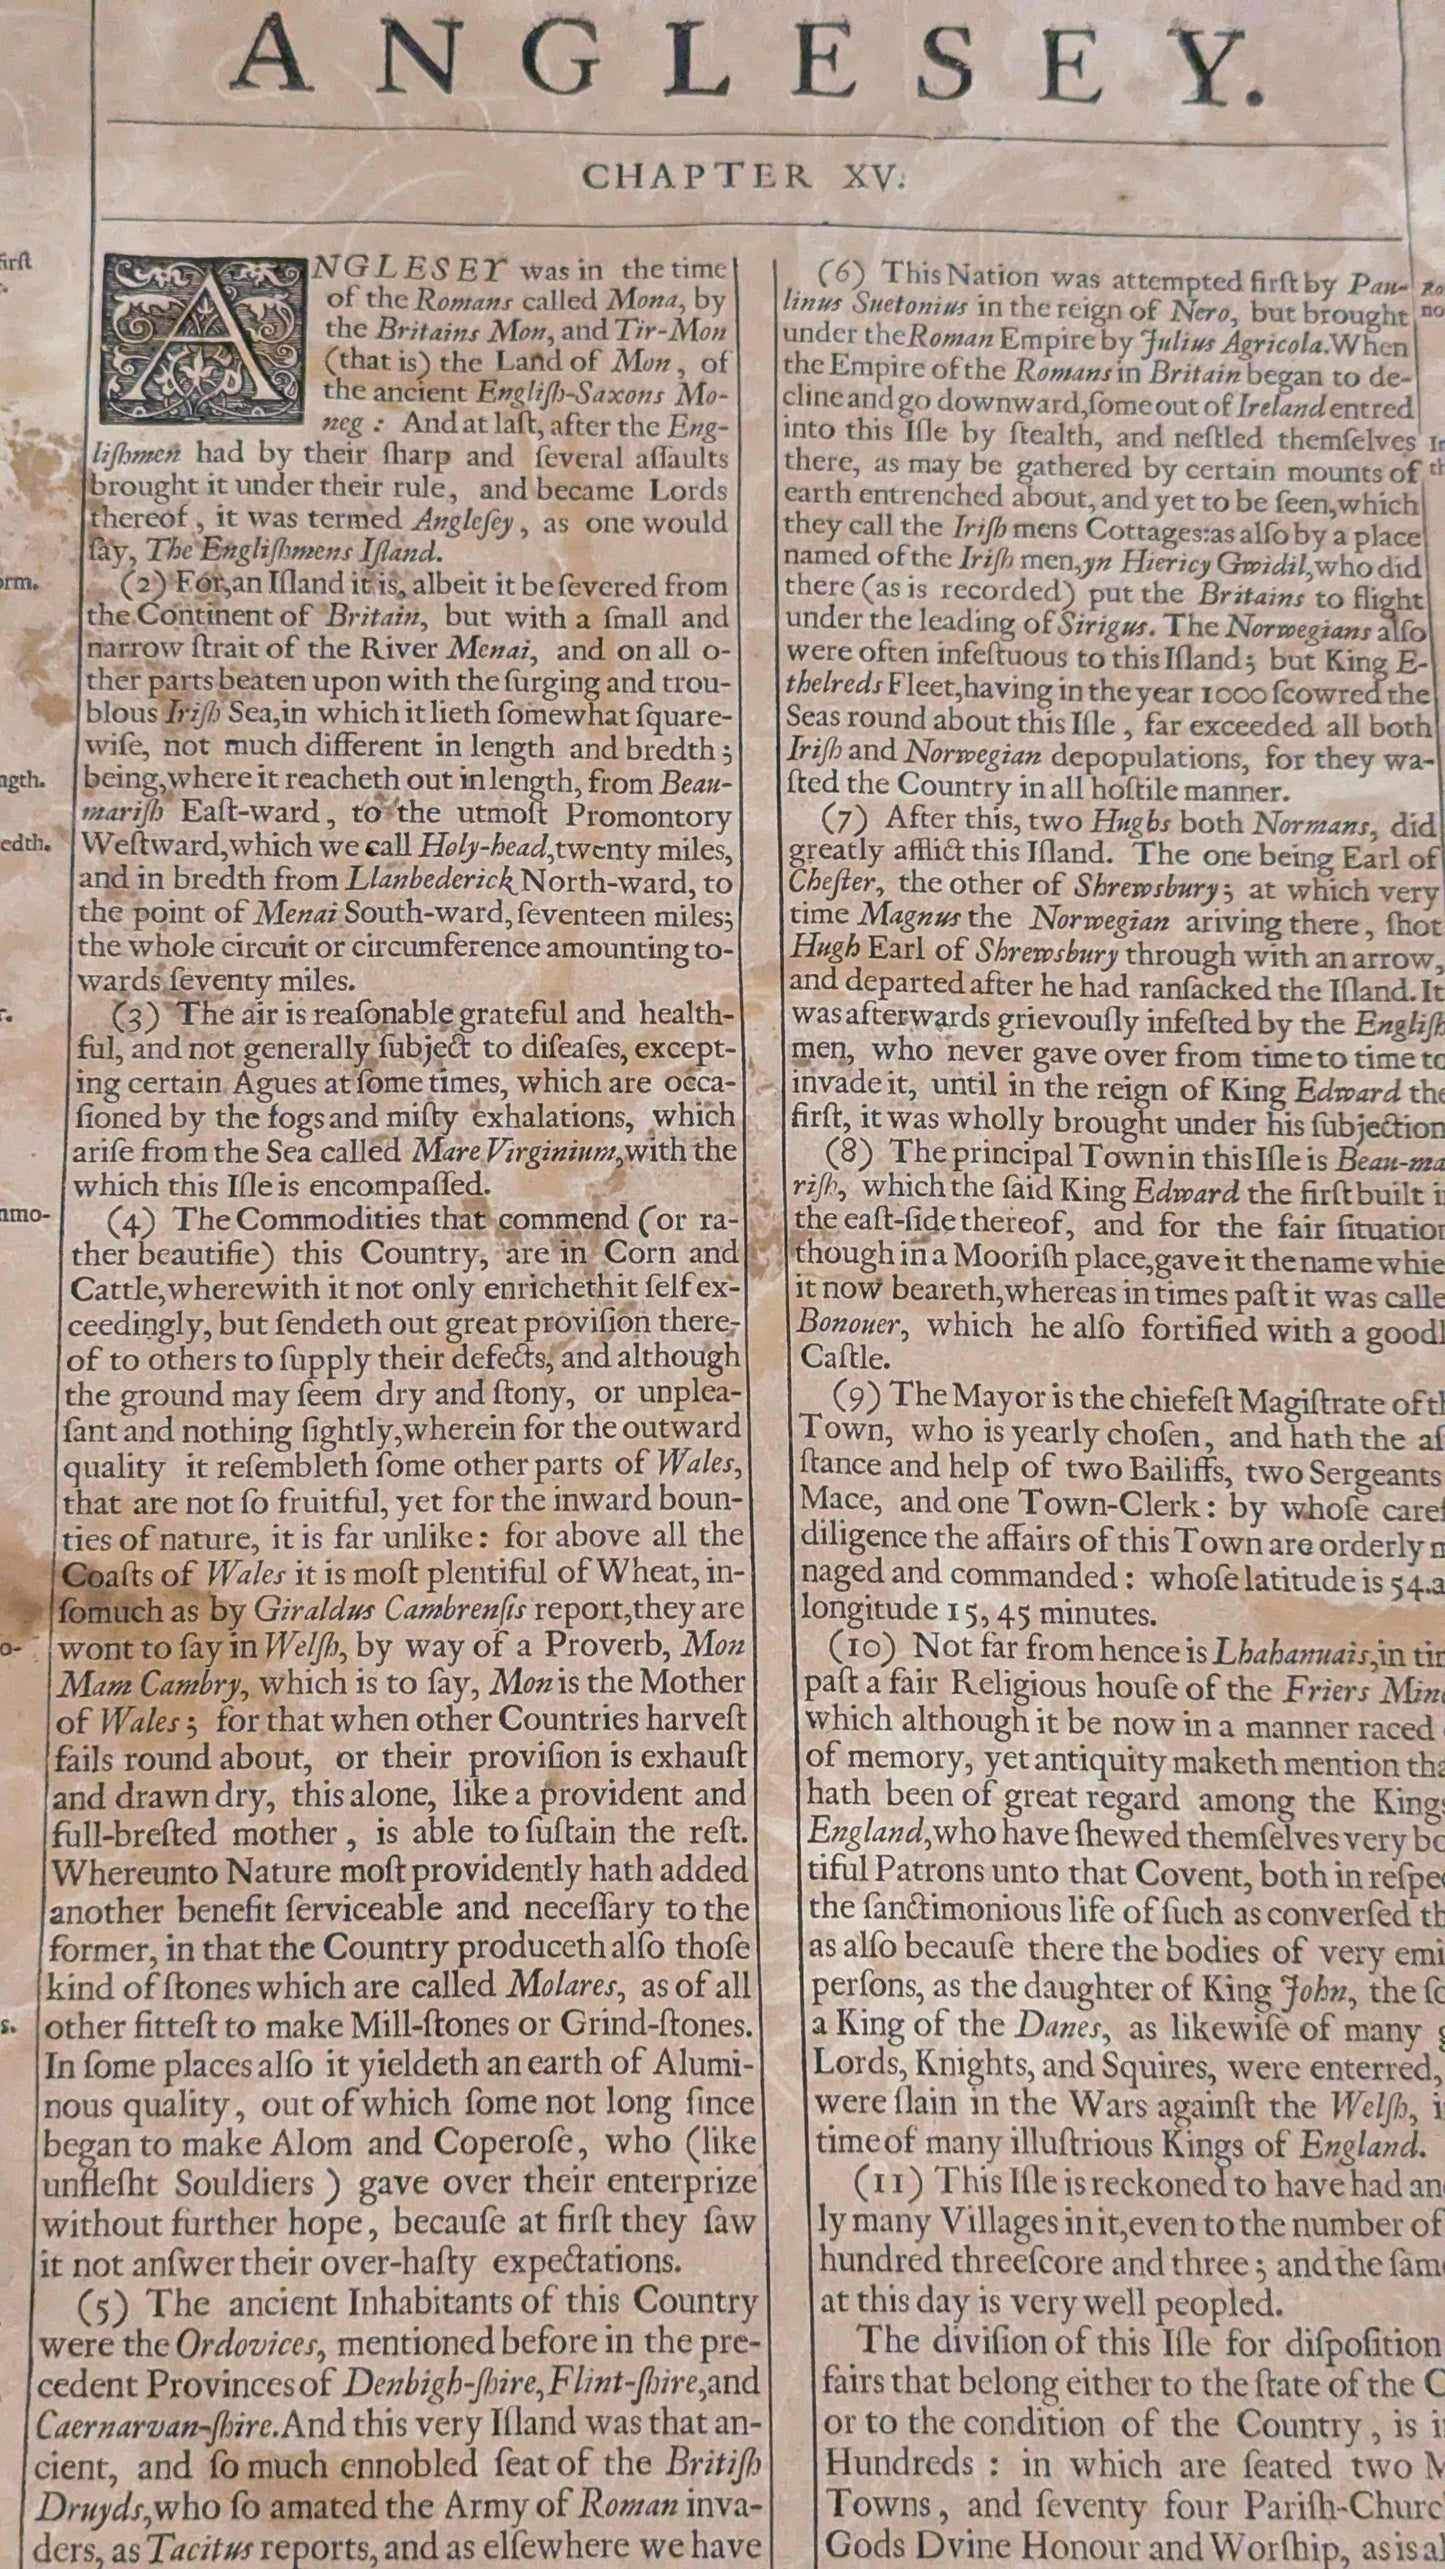 ANGLESEY.
CHAPTER XV.
ANGLESEY was in the time
of the Romans called Mona, by
the Britains Mon, and Tir-Mon
(that is) the Land of Mon, of
the ancient Engliſh-Saxons Mo-
neg: And at laſt, after the Eng-
liſhmen had by their ſharp and ſeveral aſſaults
brought it under their rule, and became Lords
thereof, it was termed Angleſey, as one would
ſay, The Engliſhmens Iſland.
(2) For, an Iſland it is, albeit it be ſevered from
the Continent of Britain, but with a ſmall and
narrow ſtrait of the River Menai, and on all o-
ther parts beaten upon with the ſurging and trou-
blous Iriſh Sea, in which it lieth ſomewhat ſquare-
wiſe, not much different in length and bredth;
being, where it reacheth out in length, from Beau-
mariſh Eaſt-ward, to the utmoſt Promontory
Weſtward, which we call Holy-head, twenty miles,
and in bredth from Llanbederick North-ward, to
the point of Menai South-ward, ſeventeen miles;
the whole circuit or circumference amounting to-
wards ſeventy miles.
(3) The air is reaſonable grateful and health-
ful, and not generally ſubject to diſeaſes, except-
ing certain Agues at ſome times, which are occa-
ſioned by the fogs and miſty exhalations, which
ariſe from the Sea called Mare Virginium, with the
which this Iſle is encompaſſed.
(4) The Commodities that commend (or ra-
ther beautifie) this Country, are in Corn and
Cattle, wherewith it not only enricheth it ſelf ex-
ceedingly, but ſendeth out great proviſion there-
of to others to ſupply their defects, and although
the ground may ſeem dry and ſtony, or unplea-
ſant and nothing ſightly, wherein for the outward
quality it reſembleth ſome other parts of Wales,
that are not ſo fruitful, yet for the inward boun-
ties of nature, it is far unlike: for above all the
Coaſts of Wales it is moſt plentiful of Wheat, in-
ſomuch as by Giraldus Cambrenſis report, they are
wont to ſay in Welſh, by way of a Proverb, Mon
Mam Cambry, which is to ſay, Mon is the Mother
of Wales; for that when other Countries harveſt
fails round about, or their proviſion is exhauſt
and drawn dry, this alone, like a provident and
full-breſted mother, is able to ſuſtain the reſt.
Whereunto Nature moſt providently hath added
another benefit ſerviceable and neceſſary to the
former, in that the Country produceth alſo thoſe
kind of ſtones which are called Molares, as of all
other fitteſt to make Mill-ſtones or Grind-ſtones.
In ſome places alſo it yieldeth an earth of Alumi-
nous quality, out of which ſome not long ſince
began to make Alom and Coperoſe, who (like
unfleſht Souldiers) gave over their enterprize
without further hope, becauſe at firſt they ſaw
it not anſwer their over-haſty expectations.
(5) The ancient Inhabitants of this Country
were the Ordovices, mentioned before in the pre-
cedent Provinces of Denbigh-ſhire, Flint-ſhire, and
Caernarvan-ſhire. And this very Iſland was that an-
cient, and ſo much ennobled ſeat of the Britiſh
Druyds, who ſo amated the Army of Roman inva-
ders, as Tacitus reports, and as elſewhere we have
(6) This Nation was attempted firſt by Pau-
linus Suetonius in the reign of Nero, but brought
under the Roman Empire by Julius Agricola. When
the Empire of the Romans in Britain began to de-
cline and go downward, ſome out of Ireland entred
into this Iſle by ſtealth, and neſtled themſelves
there, as may be gathered by certain mounts of
earth entrenched about, and yet to be ſeen, which
they call the Iriſh mens Cottages: as alſo by a place
named of the Iriſh men, yn Hiericy Gwidil, who did
there (as is recorded) put the Britains to flight
under the leading of Sirigus. The Norwegians alſo
were often infeſtuous to this Iſland; but King E-
thelreds Fleet, having in the year 1000 ſcowred the
Seas round about this Iſle, far exceeded all both
Iriſh and Norwegian depopulations, for they wa-
ſted the Country in all hoſtile manner.
(7) After this, two Hughs both Normans, did
greatly afflict this Iſland. The one being Earl of
Cheſter, the other of Shrewsbury; at which very
time Magnus the Norwegian ariving there, ſhot
Hugh Earl of Shrewsbury through with an arrow,
and departed after he had ranſacked the Iſland. It
was afterwards grievouſly infeſted by the Engliſh
men, who never gave over from time to time to
invade it, until in the reign of King Edward the
firſt, it was wholly brought under his ſubjection
(8) The principal Town in this Iſle is Beau-ma
riſh, which the ſaid King Edward the firſt built i
the eaſt-ſide thereof, and for the fair ſituation
though in a Mooriſh place, gave it the name whic
it now beareth, whereas in times paſt it was calle
Bonouer, which he alſo fortified with a goodl
Caſtle.
(9) The Mayor is the chiefeſt Magiſtrate of th
Town, who is yearly choſen, and hath the aſ
ſtance and help of two Bailiffs, two Sergeants
Mace, and one Town-Clerk: by whoſe caref
diligence the affairs of this Town are orderly m
naged and commanded: whoſe latitude is 54. a
longitude 15, 45 minutes.
(10) Not far from hence is Lhahanuais, in tim
paſt a fair Religious houſe of the Friers Mino
which although it be now in a manner raced
of memory, yet antiquity maketh mention tha
hath been of great regard among the Kings
England, who have ſhewed themſelves very bo
tiful Patrons unto that Covent, both in reſpec
the ſanctimonious life of ſuch as converſed th
as alſo becauſe there the bodies of very emi
perſons, as the daughter of King John, the ſo
a King of the Danes, as likewiſe of many g
Lords, Knights, and Squires, were enterred,
were ſlain in the Wars againſt the Welſh, i
time of many illuſtrious Kings of England.
(11) This Iſle is reckoned to have had an
ly many Villages in it, even to the number of
hundred threeſcore and three; and the ſame
at this day is very well peopled.
The diviſion of this Iſle for diſpoſition
fairs that belong either to the ſtate of the C
or to the condition of the Country, is i
Hundreds: in which are ſeated two M
Towns, and ſeventy four Pariſh-Churc
Gods Dvine Honour and Worſhip, as is al